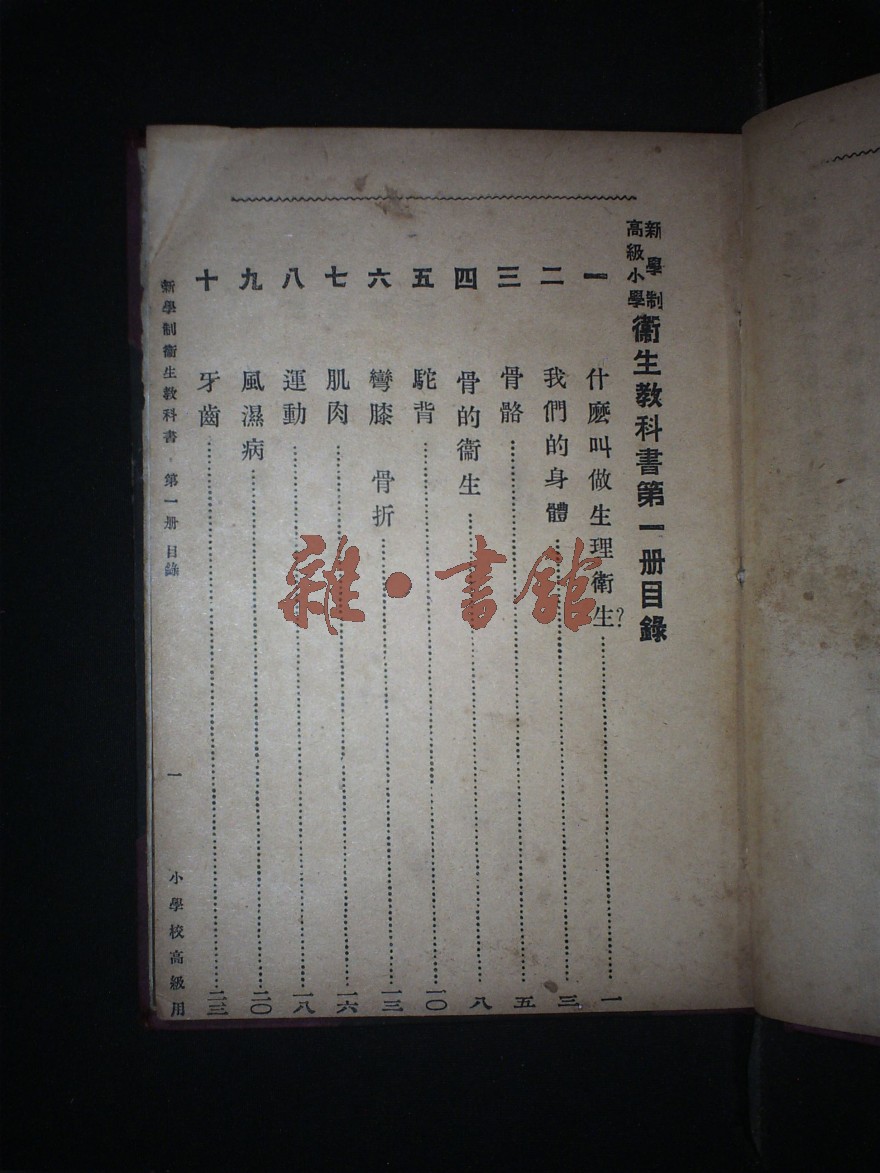 新學制
高級小學
衞生教科書第一册目錄
一 什麽叫做生理衛生?……一
二 我們的身體……三
三 骨骼……五
四 骨的衞生……八
五 駝背……一〇
六 彎膝 骨折……一三
七 肌肉……一六
八 運動……一八
九 風濕病……二〇
十 牙齒……二三
新學制衞生教科書 第一册 目錄 一 小學校高級用
雜·書館